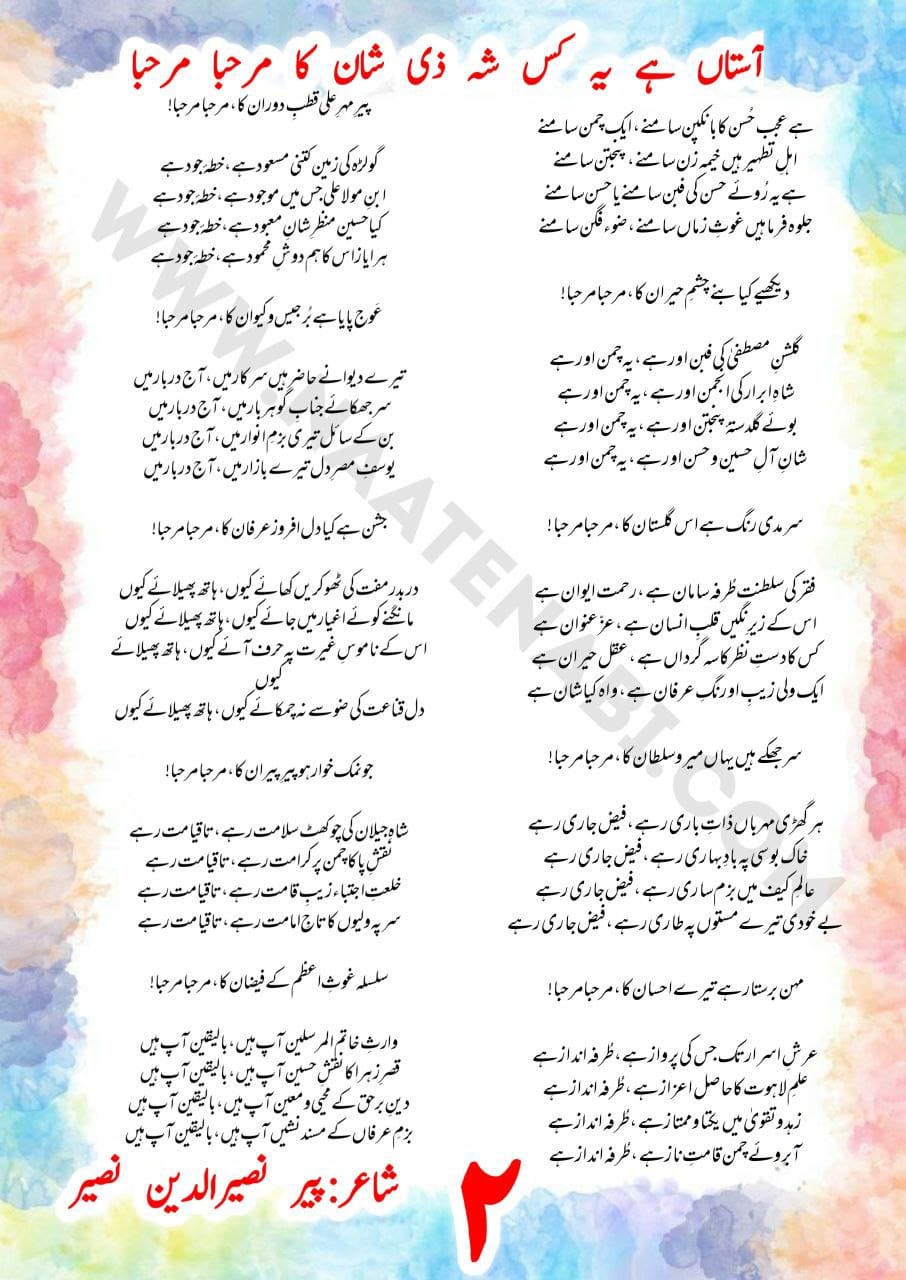 آستاں ہے یہ کس شہ ذی شان کا مرحبا مرحبا
ہے عجب حُسن کا بانکپن سامنے، ایک چمن سامنے
اہلِ تطہیر ہیں خیمہ زن سامنے، پنجتن سامنے
ہے یہ رُوئے حسن کی فبن سامنے یا حسن سامنے
جلوہ فرما ہیں غوثِ زماں سامنے، ضوء فگن سامنے
دیکھیے کیا بنے چشمِ حیران کا، مرحبا مرحبا!
گلشنِ مصطفیٰ کی فبن اور ہے، یہ چمن اور ہے
شاہِ ابرار کی انجمن اور ہے، یہ چمن اور ہے
بوئے گلدستۂ پنجتن اور ہے، یہ چمن اور ہے
شانِ آلِ حسین و حسن اور ہے، یہ چمن اور ہے
سرمدی رنگ ہے اس گلستان کا، مرحبا مرحبا!
فقر کی سلطنت طُرفہ سامان ہے، رحمت ایوان ہے
اس کے زیرِ نگیں قلبِ انسان ہے، عزِ عنوان ہے
کس کا دستِ نظر کاسہ گرداں ہے، عقل حیران ہے
ایک ولی زیبِ اورنگِ عرفان ہے، واہ کیا شان ہے
سر جھکے ہیں یہاں میر و سلطان کا، مرحبا مرحبا!
ہر گھڑی مہرباں ذاتِ باری رہے، فیض جاری رہے
خاک بوسی پہ بادِ بہاری رہے، فیض جاری رہے
عالمِ کیف میں بزم ساری رہے، فیض جاری رہے
بے خودی تیرے مستوں پہ طاری رہے، فیض جاری رہے
مہن برستا رہے تیرے احسان کا، مرحبا مرحبا!
عرشِ اسرار تک جس کی پرواز ہے، طُرفہ انداز ہے
علمِ لاہوت کا حاصل اعزاز ہے، طُرفہ انداز ہے
زہد و تقویٰ میں یکتا و ممتاز ہے، طُرفہ انداز ہے
آبروئے چمن قامتِ ناز ہے، طُرفہ انداز ہے
پیر مہرِ علی قطبِ دوران کا، مرحبا مرحبا!
گولڑہ کی زمین کتنی مسعود ہے، خطۂ جود ہے
ابنِ مولا علی جس میں موجود ہے، خطۂ جود ہے
کیا حسین منظرِ شانِ معبود ہے، خطۂ جود ہے
ہر ایاز اس کا ہم دوشِ محمود ہے، خطۂ جود ہے
عَوج پایا ہے بُرجیس و کیوان کا، مرحبا مرحبا!
تیرے دیوانے حاضر ہیں سرکار میں، آج دربار میں
سر جھکائے جنابِ گوہر بار میں، آج دربار میں
بن کے سائل تیری بزمِ انوار میں، آج دربار میں
یوسفِ مصرِ دل تیرے بازار میں، آج دربار میں
جشن ہے کیا دل افروز عرفان کا، مرحبا مرحبا!
در بدر مفت کی ٹھوکریں کھائے کیوں، ہاتھ پھیلائے کیوں
مانگنے کوئے اغیار میں جائے کیوں، ہاتھ پھیلائے کیوں
اس کے ناموسِ غیرت پہ حرف آئے کیوں، ہاتھ پھیلائے
کیوں
دل قناعت کی ضو سے نہ چمکائے کیوں، ہاتھ پھیلائے کیوں
جو نمک خوار ہو پیرِ پیران کا، مرحبا مرحبا!
شاہِ جیلان کی چوکھٹ سلامت رہے، تا قیامت رہے
نقشِ پا کا چمن پر کرامت رہے، تا قیامت رہے
خلعتِ اجتباء زیبِ قامت رہے، تا قیامت رہے
سر پہ ولیوں کا تاجِ امامت رہے، تا قیامت رہے
سلسلہ غوثِ اعظم کے فیضان کا، مرحبا مرحبا!
وارثِ خاتم المرسلین آپ ہیں، بالیقین آپ ہیں
قصرِ زہرا کا نقشِ حسین آپ ہیں، بالیقین آپ ہیں
دینِ برحق کے محیی و معین آپ ہیں، بالیقین آپ ہیں
بزمِ عرفاں کے مسند نشیں آپ ہیں، بالیقین آپ ہیں
شاعر: پیر نصیر الدین نصیر
۲
WWW.NAATENABI.COM